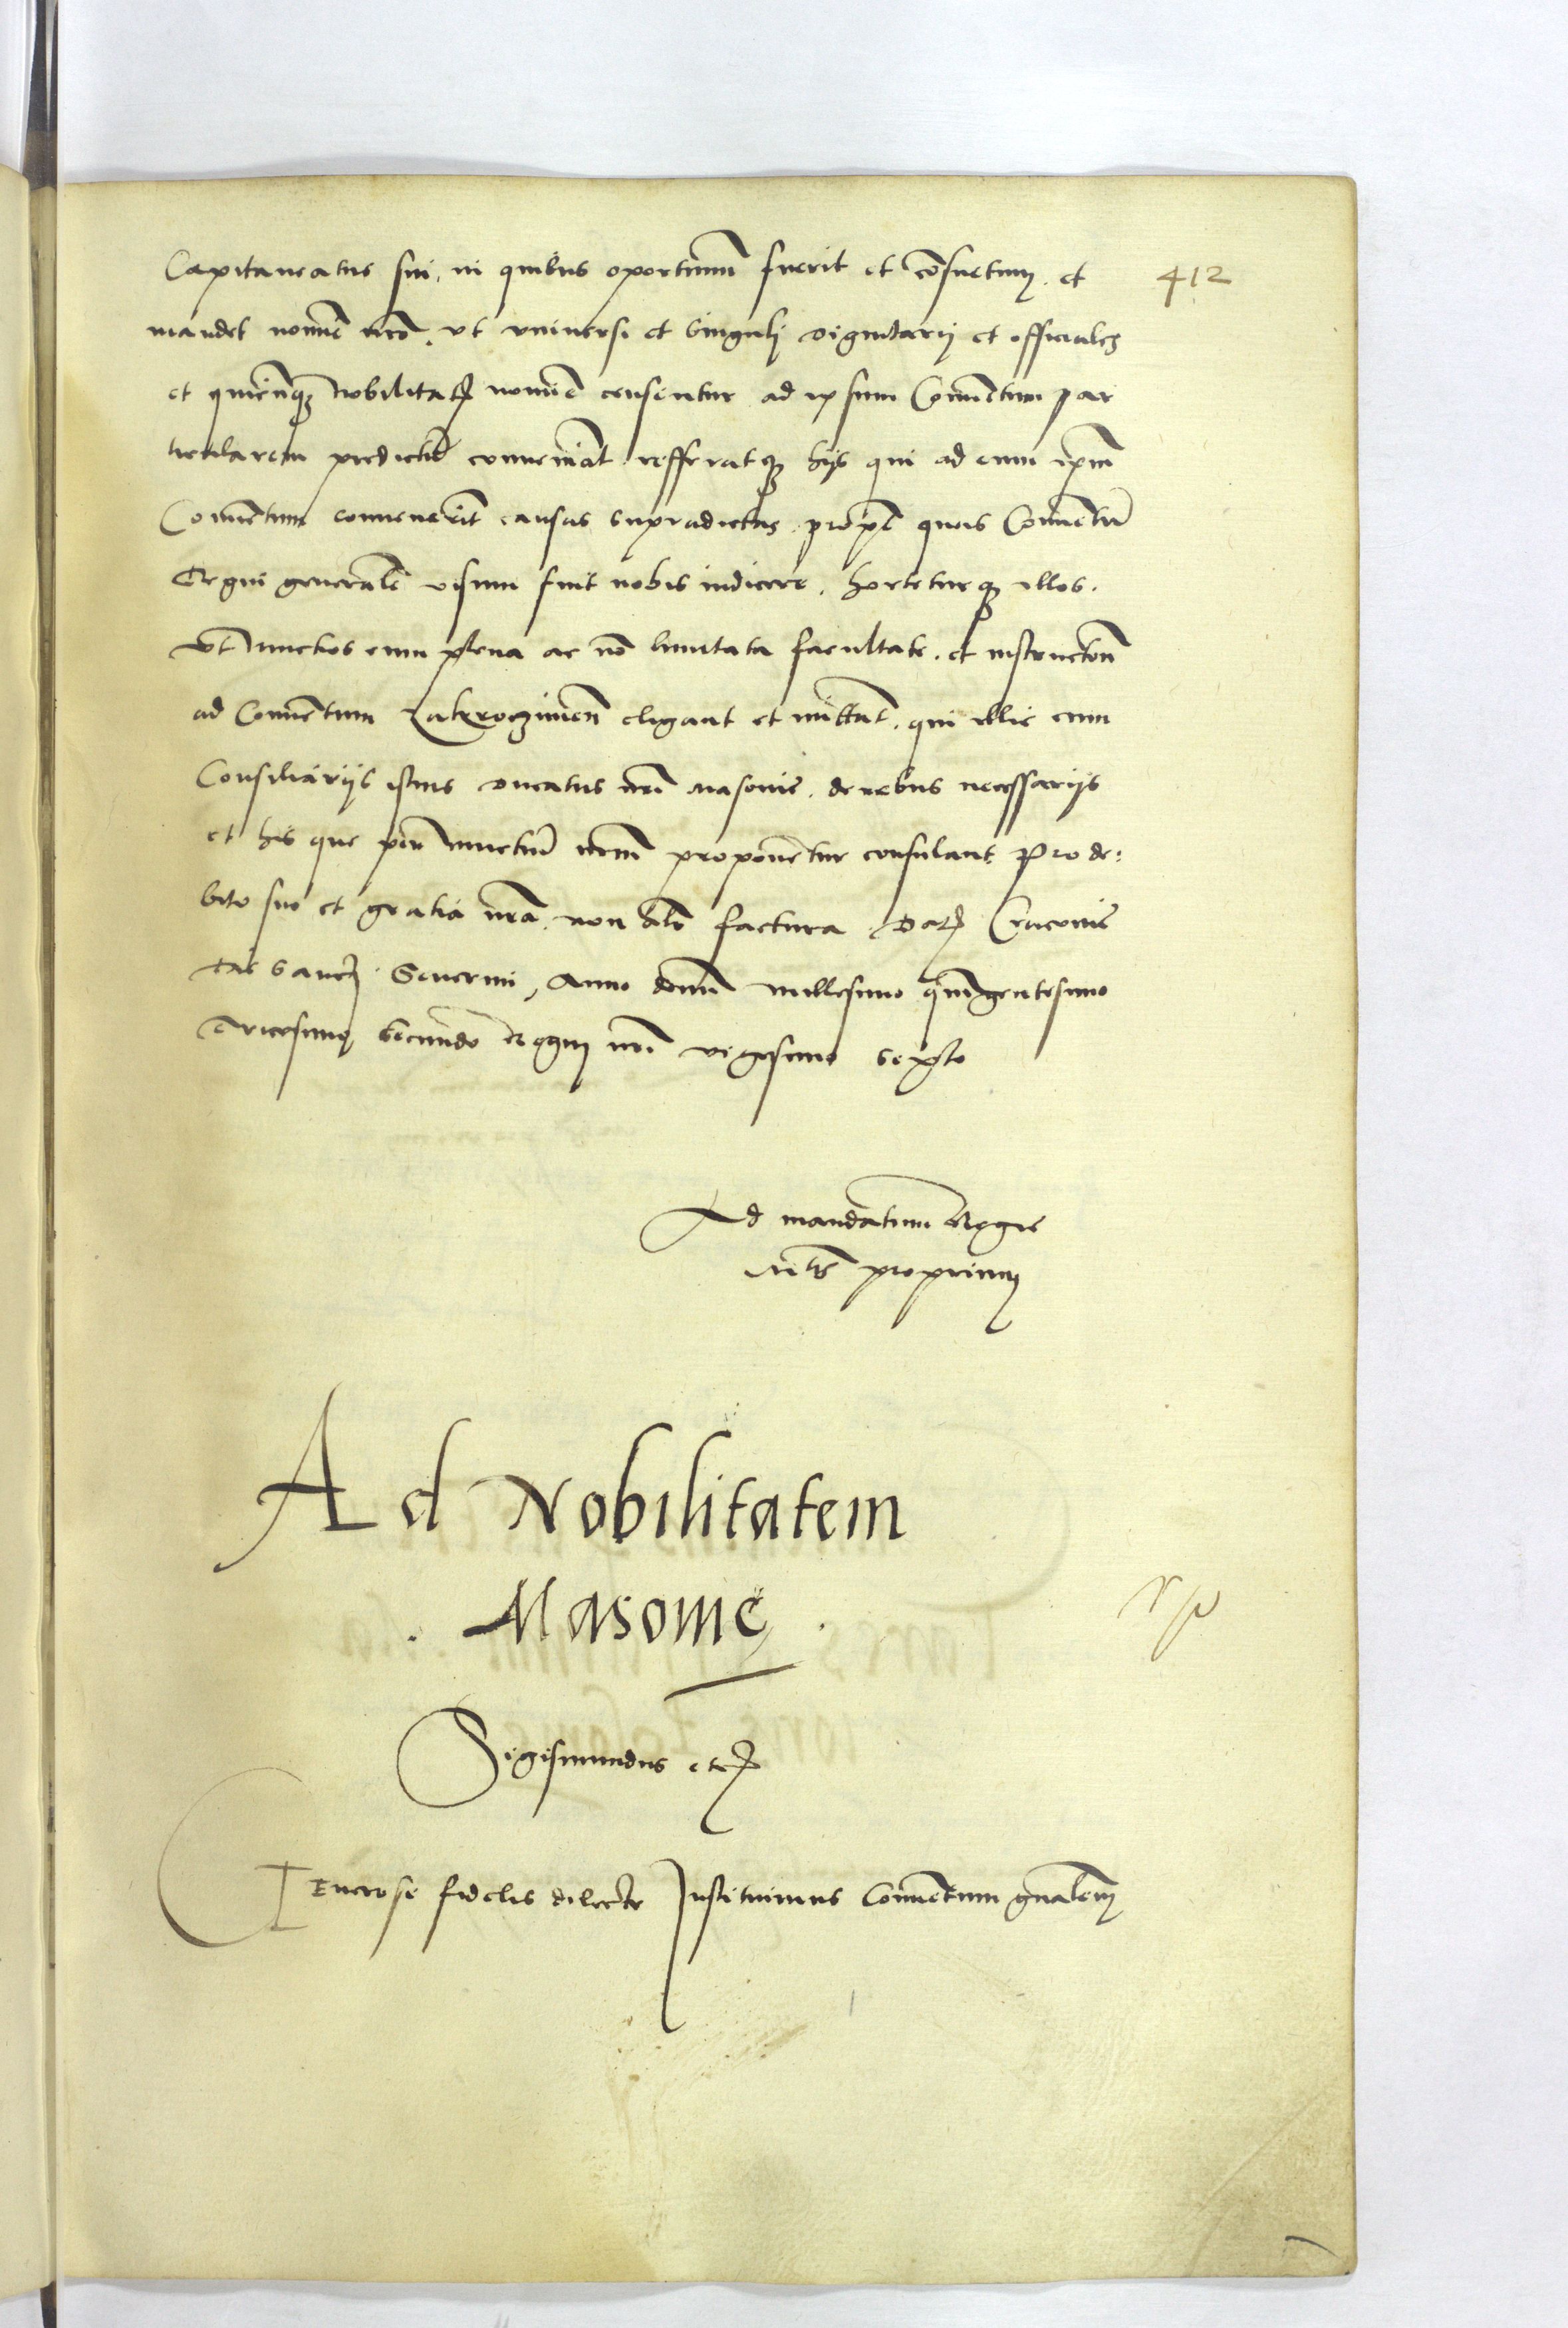 Capitaneatus sui, in quibus oportunum fuerit et cõsuetum, et
412
mandet nomĩe nrõ, vt vniuersi et singuli dignitarij et officiales
et quicũq3 nobilitatis nomĩe censentur ad ipsum Conuẽtum par
ticularem predictũ conueniãt refferatq3 hijs qui ad eum ipm̃
Conuẽtum conuenerĩt causas supradictas, propt̃ quas Conuẽtũ
Regni generalẽ visum fuit nobis indicere, horteturq3 illos,
vt nuncios cum plena ac nõ limitata facultate, et instructiõe
ad Conuẽtum Zakroczimeñ eligant et mittãt, qui illic cum
Consiliarijs istius ducatus nrĩ Masouie, de rebus necessarijs
et his que per nuncium nrm̃ proponẽtur consulant, Pro de:
bito suo et gratia nrã, non alr̃ factura, Dat̃ Cracouie
die sancti Seuerini, Anno domĩ millesimo quĩgentesimo
Tricesimo secundo Regni nrĩ vigesimo sexto
Ad mandatum Regie
Mtis proprium
Ad Nobilitatem
. Masouie .
Sigismundus etc
Generose fidelis dilecte Instituimus Conuẽtum gñalem